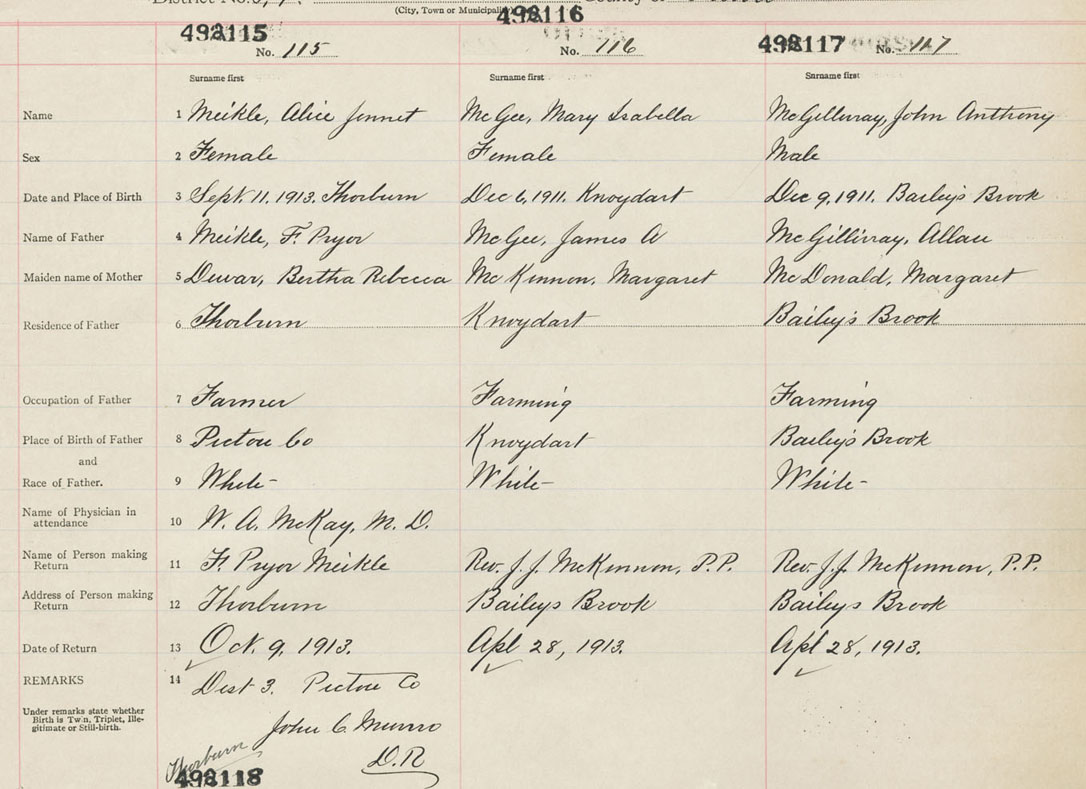 District No.
(City, Town or Municipality)
County of
498115 498116 498117
No. 115 No. 116 No. 117
Surname first Surname first Surname first
Name 1 Meikle, Alice Jennet McGee, Mary Isabella McGillivray, John Anthony
Sex 2 Female Female Male
Date and Place of Birth 3 Sept. 11. 1913. Thorburn Dec 6, 1911. Knoydart Dec 9, 1911. Bailey's Brook
Name of Father 4 Meikle, F. Pryor McGee, James A McGillivray, Allan
Maiden name of Mother 5 Dewar, Bertha Rebecca McKinnon, Margaret McDonald, Margaret
Residence of Father 6 Thorburn Knoydart Bailey's Brook
Occupation of Father 7 Farmer Farming Farming
Place of Birth of Father 8 Pictou Co Knoydart Bailey's Brook
and
Race of Father. 9 White- White- White-
Name of Physician in attendance 10 W. A. McKay, M. D.
Name of Person making Return 11 F. Pryor Meikle Rev. J. J. McKinnon, P.P. Rev. J. J. McKinnon, P.P.
Address of Person making Return 12 Thorburn Baileys Brook Baileys Brook
Date of Return 13 Oct. 9, 1913. Apl 28, 1913. Apl 28, 1913.
REMARKS 14 Dist 3. Pictou Co
Under remarks state whether
Birth is Twin, Triplet, Ille-
gitimate or Still-birth.
John C Munro
D.R
Thorburn
498118